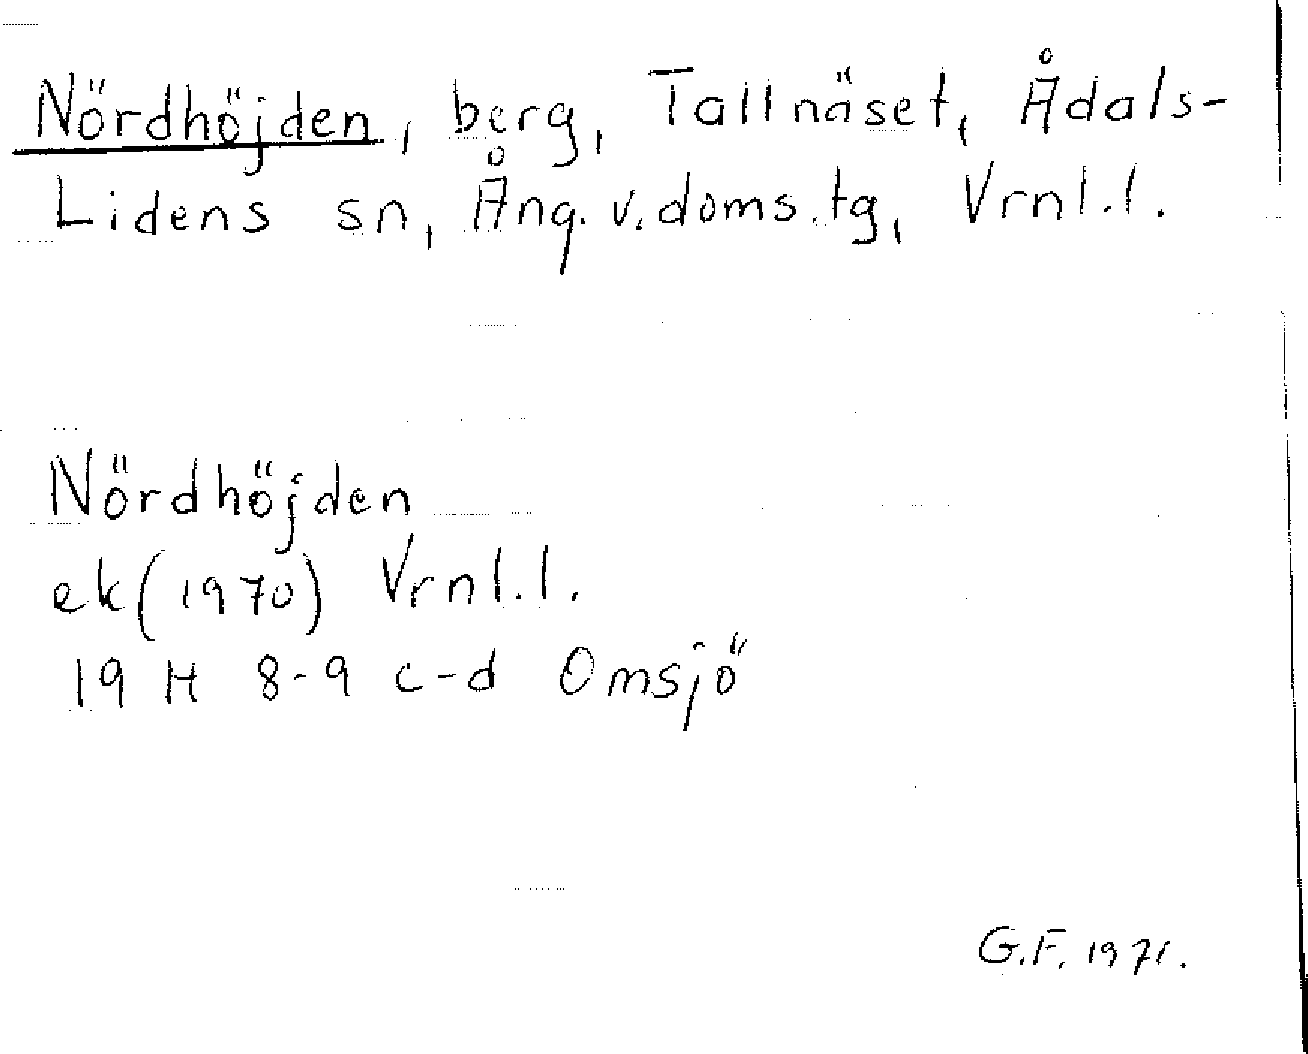 Nördhöjden, berg, Tallnäset, Ådals-
Lidens sn, Ång. v. doms. tg, Vrnl.l.
Nördhöjden
ek (1970) Vrnl.l.
19 H 8-9 c-d Omsjö
G.F. 1971.